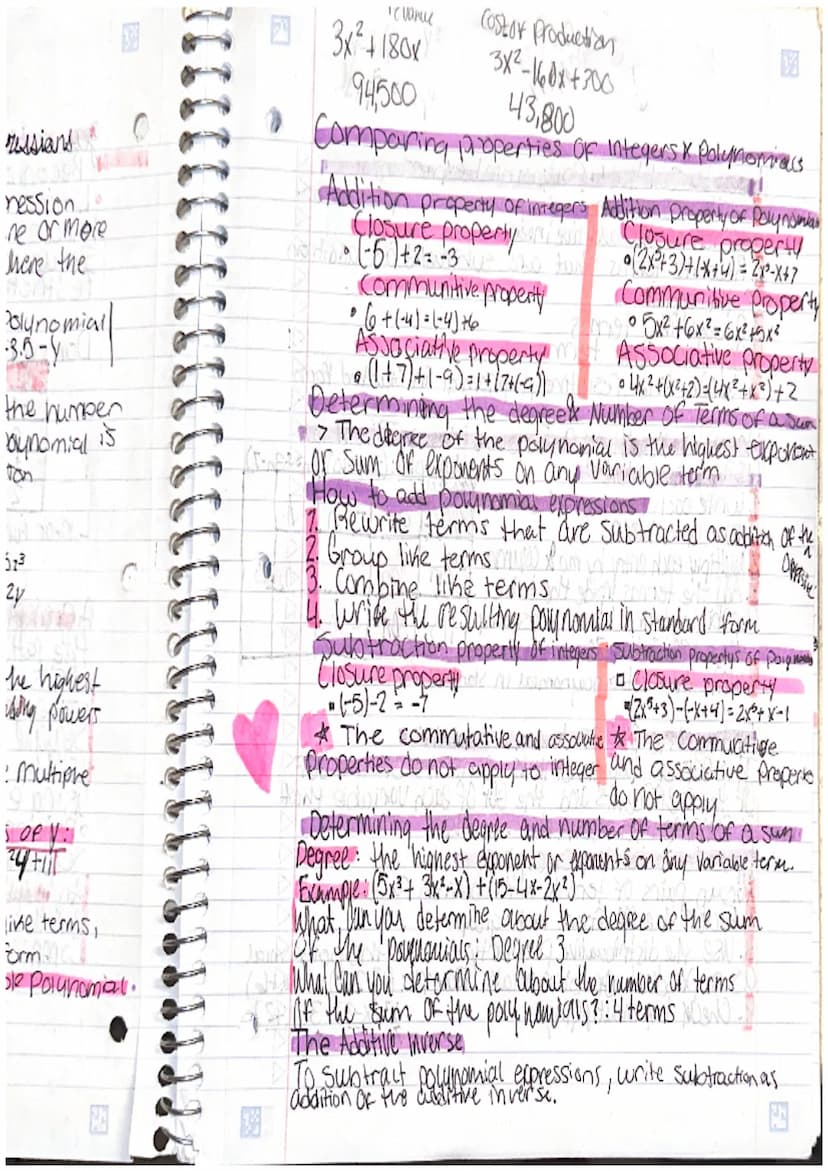 russians
ression
ne or more
here the
Polynomial
-3.5-y
the number
polynomial is
ton
5z³
2y
he highest
powers
multiple
s of y:
²4y+11
like terms,
form
ole Polynomial.
3x²+180x
94,500
Cost of Production
3x²-160x+300
43,800
Comparing properties of Integers & Polynomials
Addition property of integers
Closure property
• (-5)+2=-3
Communitive property
• 6+(-4)=(-4)+6
Associative property
• (1+7)+(-9)=1+(7+(-9))
Addition Property of Polynomials
Closure property
• (2x⁵+3)+(-x+4)=2x⁵-x+7
Communitive Property
• 5x²+6x²=6x²+5x²
Associative property
• 4x²+(x²+2)=(4x²+x²)+2
Determining the degree & Number of Terms of a sum
> The degree of the polynomial is the highest exponent
or sum of exponents on any variable term
How to add polynomial expressions
1. Rewrite terms that are subtracted as addition of the opposite
2. Group like terms
3. Combine like terms
4. Write the resulting polynomial in standard form
Subtraction property of integers
Closure property
• (-5)-2=-7
★ The commutative and associative
Properties do not apply to integer
Subtraction Propertys of Polynomials
Closure property
• (2x⁵+3)-(-x+4)=2x⁵+x-1
★ The Commuative
and associative Properties
do not apply
Determining the degree and number of terms of a sum:
Degree: the highest exponent or exponents on any variable term.
Example: (5x³+3x²-x)+(15-4x-2x²)
What can you determine about the degree of the sum
of the polynomials: Degree 3
What can you determine about the number of terms
of the sum of the polynomials?: 4 terms
The Additive Inverse
To subtract polynomial expressions, write subtraction as
addition of the additive inverse.